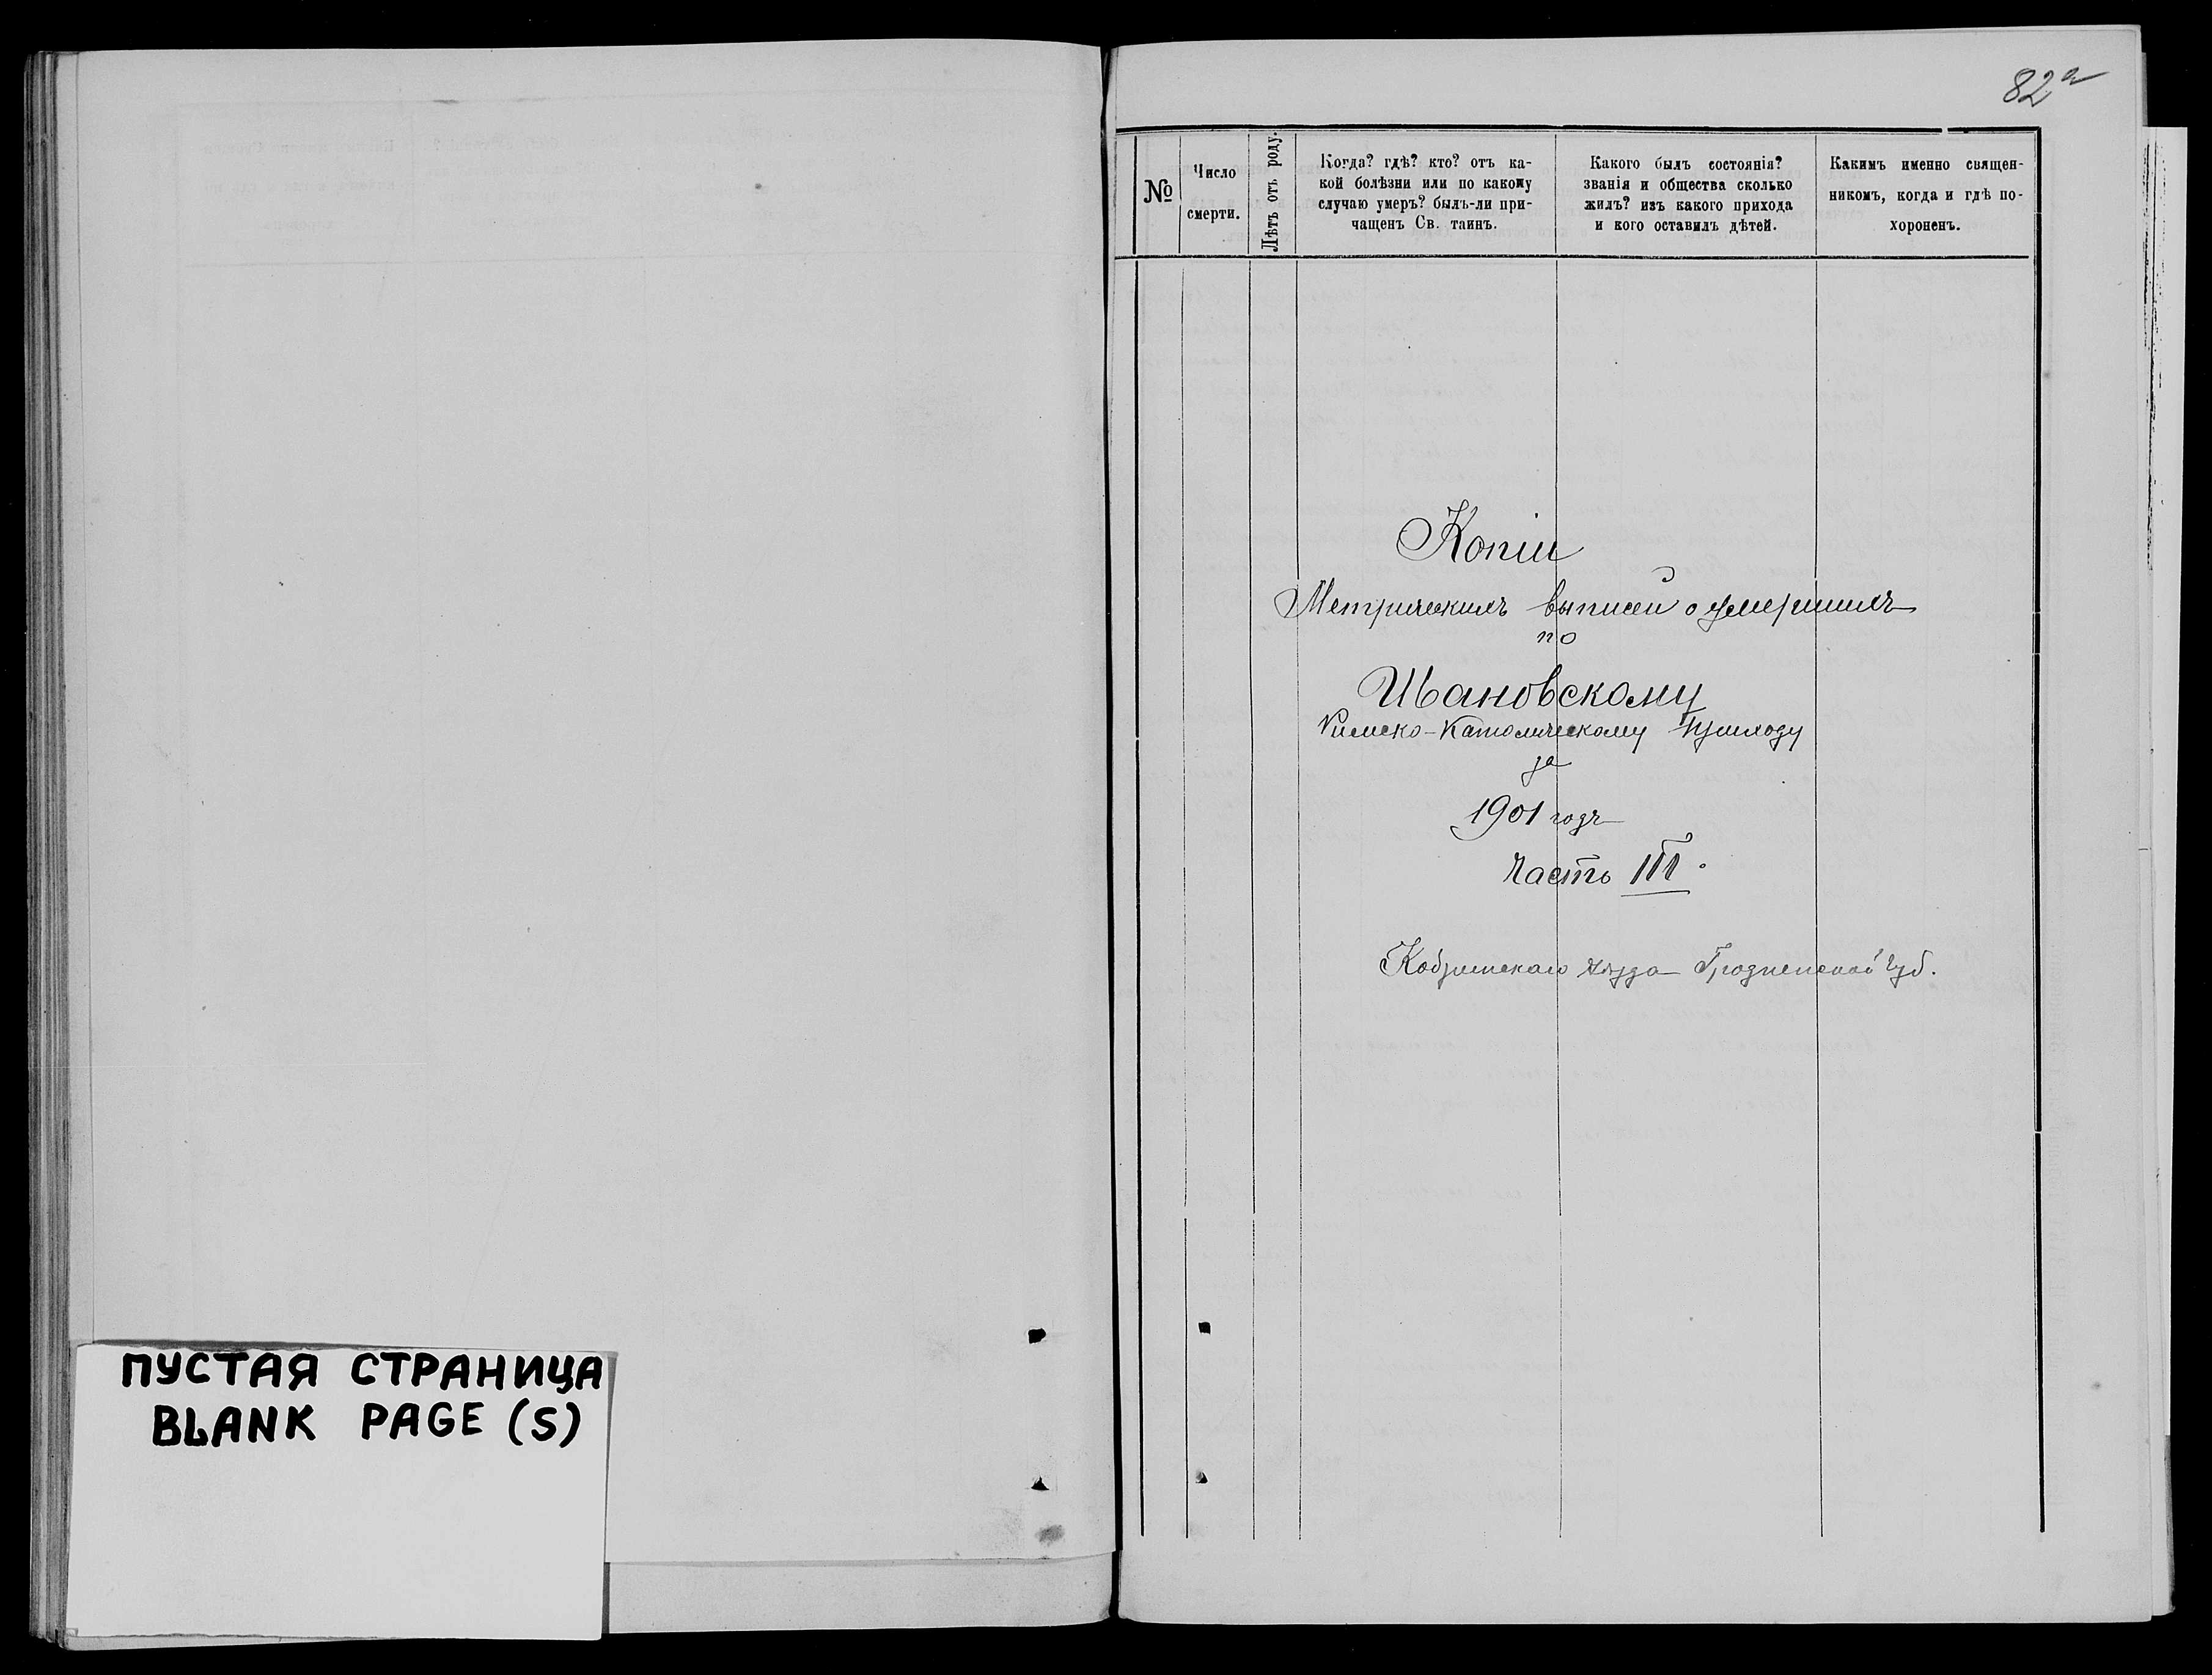 ПУСТАЯ СТРАНИЦА
BLANK PAGE (S)
82а
№
Число
смерти.
Лѣтъ отъ роду.
Когда? гдѣ? кто? отъ ка-
кой болѣзни или по какому
случаю умеръ? былъ-ли при-
чащенъ Св. таинъ.
Какого былъ состоянія?
званія и общества сколько
жилъ? изъ какого прихода
и кого оставилъ дѣтей.
Какимъ именно священ-
никомъ, когда и гдѣ по-
хороненъ.
Копіи
Метрическихъ выписей о умершихъ
по
Ивановскому
Римско-Католическому Приходу
за
1901 годъ
Часть III.
Кобринскаго уѣзда Гродненской губ.